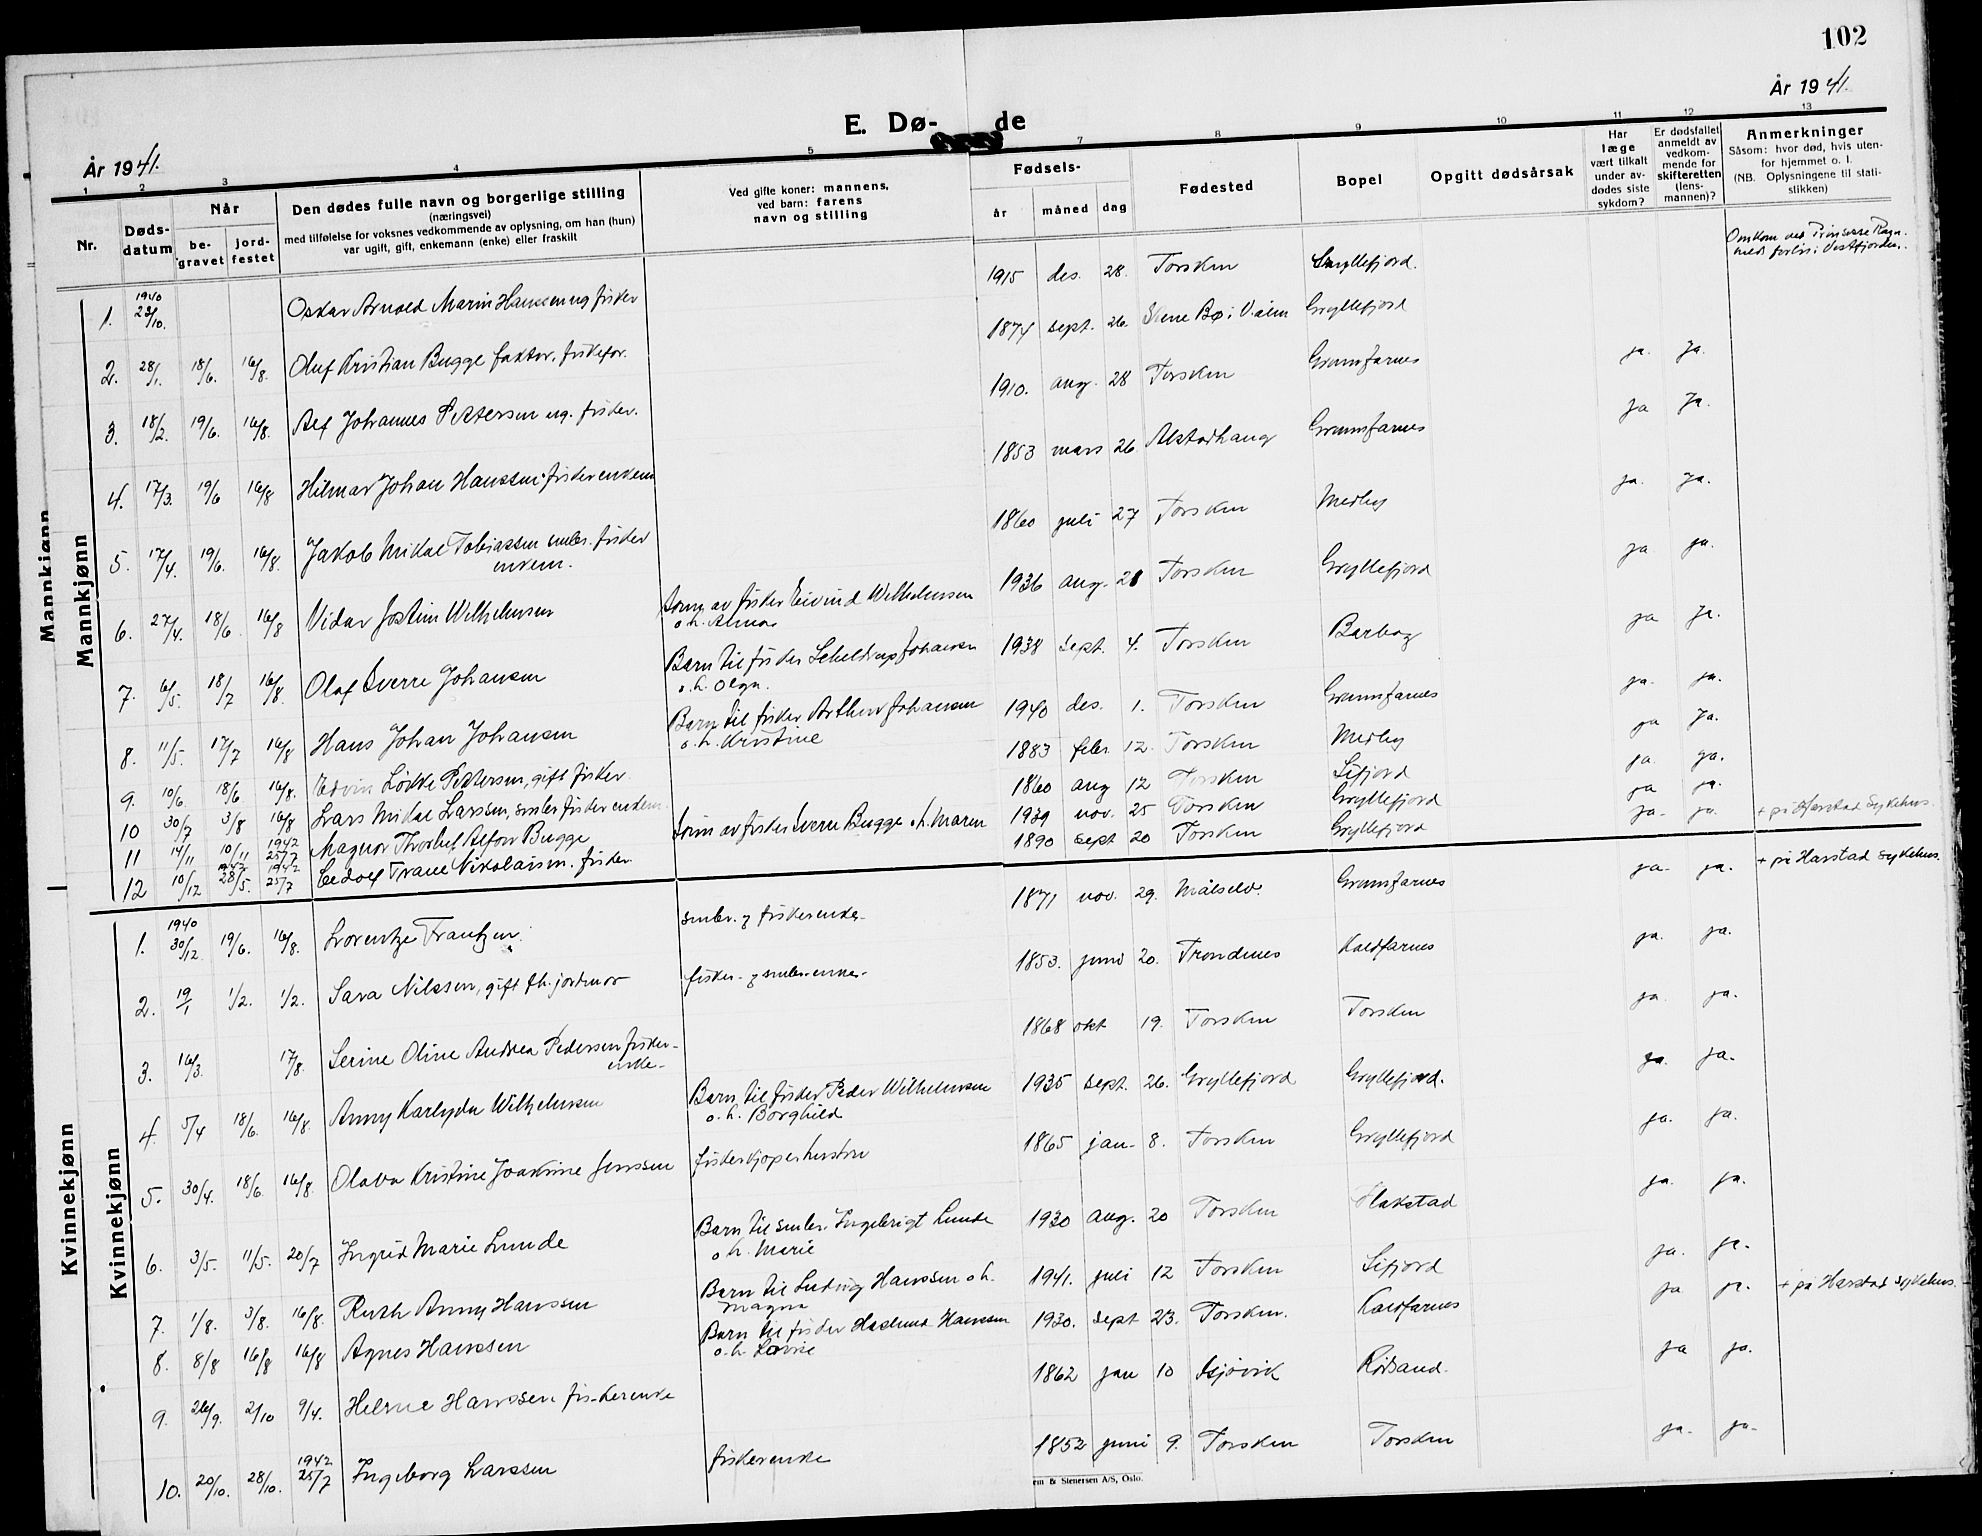 102
År 1941.
År 1941.
E. Dø- de
1 2 3 4 5 7 8 9 10 11 12 13
Nr.
Døds-
datum
Når
be-
gravet
jord-
festet
Den dødes fulle navn og borgerlige stilling
(næringsvei)
med tilføielse for voksnes vedkommende av oplysning, om han (hun)
var ugift, gift, enkemann (enke) eller fraskilt
Ved gifte koner: mannens,
ved barn: farens
navn og stilling
Fødsels-
år måned dag
Fødested
Bopel
Opgitt dødsårsak
Har
læge
vært tilkalt
under av-
dødes siste
sykdom?
Er dødsfallet
anmeldt av
vedkom-
mende for
skifteretten
(lens-
mannen)?
Anmerkninger
Såsom: hvor død, hvis uten-
for hjemmet o. l.
(NB. Oplysningene til stati-
stikken)
Mannkjønn
Mannkjønn
1. 1940 23/10. Oskar Arnold Marin Hanssen ug fisker 1915 des. 28. Torsken Gryllefjord. Omkom ved Prinsesse Ragn-
hilds forlis i Vestfjorden.
2. 28/1. 18/6. 16/8. Oluf Kristian Bugge faktor, fiskefor. 1874 sept. 26. Bø i V.ålen Gryllefjord ja. ja.
3. 18/2. 19/6. 16/8. Alf Johannes Pettersen ug. fisker. 1910. aug. 28 Torsken Grunnfarnes ja ja.
4. 17/3. 19/6 16/8 Hilmar Johan Hanssen fisker enkem 1853 mars 26. Alstadhaug Grunnfarnes ja. ja.
5. 17/4. 19/6. 16/8. Jakob Mikal Tobiassen småbr. fisker
enkem. 1860 juli 27 Torsken Medby ja ja.
6. 27/4. 18/6. 16/8 Vidar Jostein Wilhelmsen Sønn av fisker Eivind Wilhelmsen
o.h. Alma 1936 aug. 21 Torsken Gryllefjord ja ja.
7. 6/5. 18/7 16/8. Olaf Sverre Johansen Barn til fisker Scheldrup Johansen
o.h. Olga. 1938 sept. 4. Torsken Barbog ja. ja.
8. 11/5. 17/7 16/8 Hans Johan Johansen Barn til fisker Arthur Johansen
o.h. Kristine 1940 des. 1. Torsken Grunnfarnes ja ja.
9. 10/6. 18/6 16/8. Edvin Løkke Pettersen, gift fisker. 1883 febr 12. Torsken Medby ja. ja.
10 30/7 3/8 16/8 Lars Mikal Larssen, småbr fisker enkem 1860 aug 12 Torsken Sifjord ja ja.
11 14/11 10/11 1942 25/7 Magnor Thorleif Alfon Bugge Sønn av fisker Sverre Bugge o.h. Maren 1939 nov. 25 Torsken Gryllefjord ja. ja. + på Harstad Sykehus.
12 10/12 1942 28/5. 1942 25/7 Cedolf Trane Nikolaisen. fisker. 1890 sept 20 Torsken Gryllefjord ja. ja. + på Harstad sykehus.
Kvinnekjønn
Kvinnekjønn
1. 1940 30/12. 19/6. 16/8. Lorentze Frantzen. småbr. og fiskerenke. 1871 nov. 29. Målselv. Grunnfarnes ja. ja.
2. 19/1 1/2. 1/2. Sara Nilssen, gift fh. jordmor fisker- og småbr-enke. 1853. juni 20. Trondenes Kaldfarnes ja. ja.
3. 16/3. 17/8. Serine Oline Andrea Pedersen fisker-
enke. 1868 okt 19. Torsken Torsken ja. ja.
4. 5/4 18/6. 16/8. Anny Karlyda Wilhelmsen Barn til fisker Peder Wilhelmsen
o.h. Borghild 1935 sept. 26. Gryllefjord Gryllefjord. ja. ja.
5. 30/4. 18/6. 16/8. Olava Kristine Joakime Jenssen fiskerkjøperhustru 1865 jan. 8. Torsken Gryllefjord ja. ja.
6. 3/5. 11/5. 20/7 Ingrid Marie Lunde Barn til småbr. Ingebrigt Lunde
o.h. Marie 1930 aug. 20 Torsken Flakstad ja. ja.
7. 1/8. 3/8. 16/8. Ruth Anny Hanssen Barn til Ludvig Hanssen o.h.
Magna 1941. juli 12 Torsken Sifjord ja. ja.
8. 8/8 16/8 16/8 Agnes Hanssen Barn til fisker Haslund Hanssen
o.h. Lovise 1930. sept 23. Torsken. Kaldfarnes ja ja. + på Harstad sykehus.
9. 26/9. 2/10 9/4. Helene Hanssen fiskerenke 1862 jan 10 Gjøvik Rødsand. ja ja.
10. 20/10. 28/10. 1942 25/7 Ingeborg Larssen fiskerenke 1852 juni 9. Torsken Torsken ja. ja.
em & Stenersen A/S, Oslo.